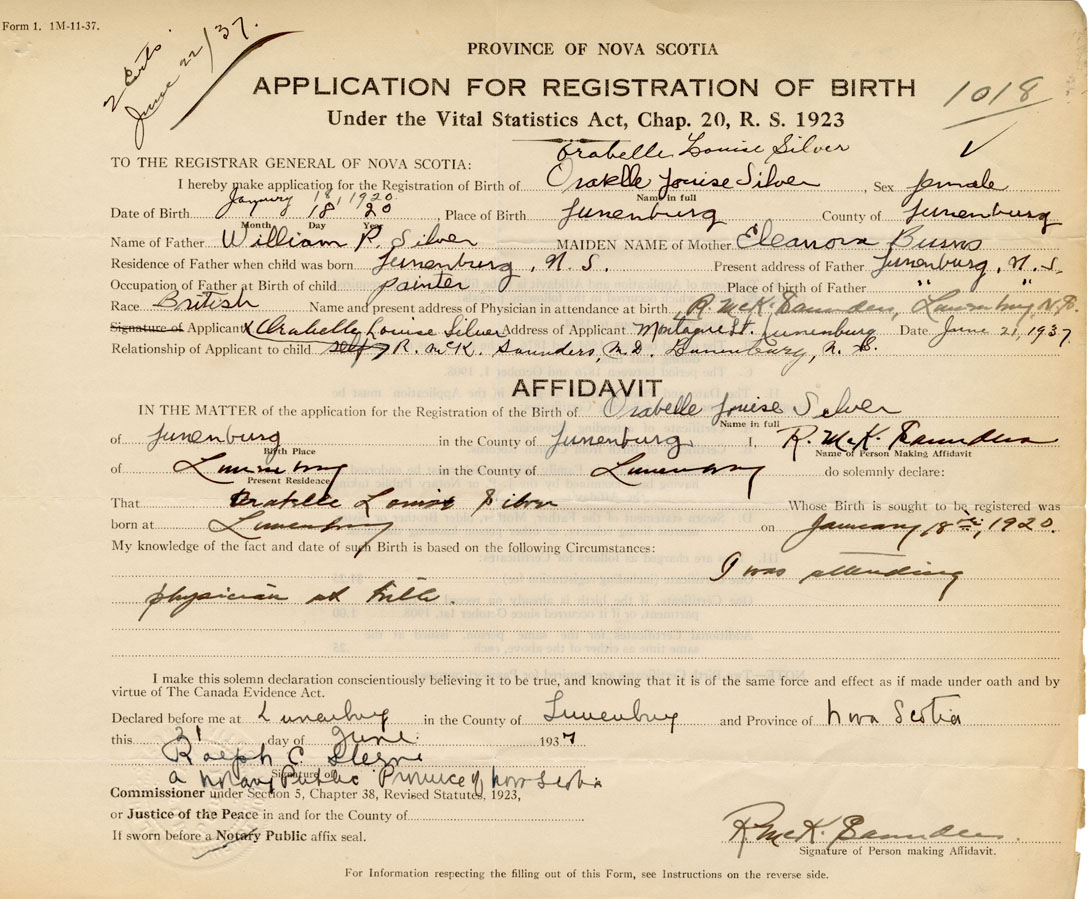 Form 1. 1M-11-37.
2 Certs.
June 22/37.
PROVINCE OF NOVA SCOTIA
APPLICATION FOR REGISTRATION OF BIRTH
1018
Under the Vital Statistics Act, Chap. 20, R. S. 1923
Orabelle Louise Silver
TO THE REGISTRAR GENERAL OF NOVA SCOTIA:
I hereby make application for the Registration of Birth of Orabelle Louise Silver, Sex female
Name in full
January 18, 1920
Date of Birth 18 20, Place of Birth Lunenburg County of Lunenburg
Month Day Year
Name of Father William P. Silver MAIDEN NAME of Mother Eleanora Burns
Residence of Father when child was born Lunenburg, N. S. Present address of Father Lunenburg, N. S.
Occupation of Father at Birth of child painter Place of birth of Father " "
Race British Name and present address of Physician in attendance at birth R. McK. Saunders, Lunenburg N.S.
Signature of Applicant X Orabelle Louise Silver Address of Applicant Montague St. Lunenburg Date June 21, 1937
Relationship of Applicant to child self R. McK. Saunders, M.D. Lunenburg, N. S.
AFFIDAVIT
IN THE MATTER of the application for the Registration of the Birth of Orabelle Louise Silver
Name in full
of Lunenburg in the County of Lunenburg I, R. McK. Saunders
Birth Place Name of Person Making Affidavit
of Lunenburg in the County of Lunenburg do solemnly declare:
Present Residence
That Orabelle Louise Silver Whose Birth is sought to be registered was
born at Lunenburg on January 18th, 1920.
My knowledge of the fact and date of such Birth is based on the following Circumstances:
I was attending
physician at birth.
I make this solemn declaration conscientiously believing it to be true, and knowing that it is of the same force and effect as if made under oath and by
virtue of The Canada Evidence Act.
Declared before me at Lunenburg in the County of Lunenburg and Province of Nova Scotia
this 21 day of June 1937
Ralph C Sterne
Signature of
a Notary Public Province of Nova Scotia
Commissioner under Section 5, Chapter 38, Revised Statutes, 1923,
or Justice of the Peace in and for the County of
If sworn before a Notary Public affix seal.
R. McK. Saunders.
Signature of Person making Affidavit.
For Information respecting the filling out of this Form, see Instructions on the reverse side.